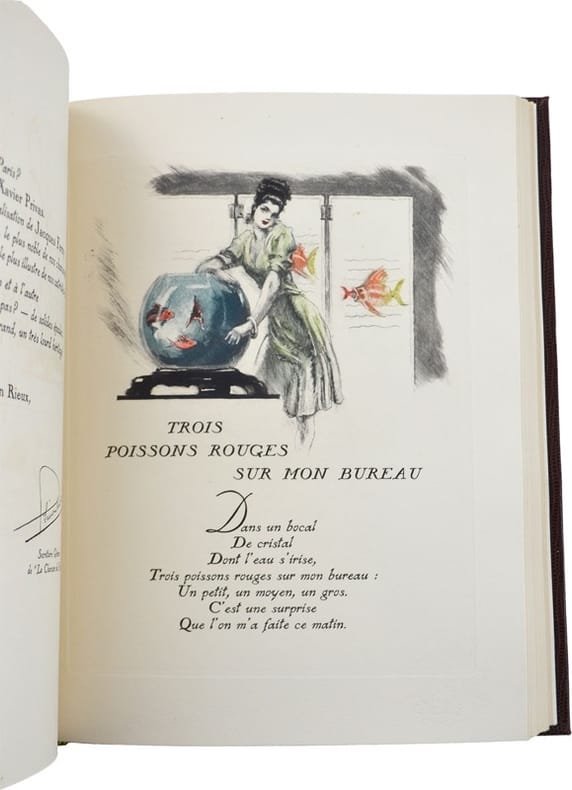 Paris?
Xavier Privas
alisation de Jacques
le plus noble de nos
le plus illustre de nos
et à l'autre
pas? — de solides
rand, un très lourd
n Rieux,
de "La
TROIS
POISSONS ROUGES
SUR MON BUREAU
Dans un bocal
De cristal
Dont l'eau s'irise,
Trois poissons rouges sur mon bureau :
Un petit, un moyen, un gros.
C'est une surprise
Que l'on m'a faite ce matin.